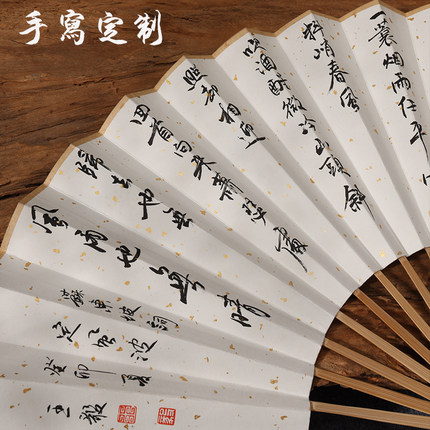 手寫定制
一蓑烟雨任平
料峭春風
吹酒醒微冷山頭斜
照却相迎
回首向來蕭瑟處
歸去也無
風雨也無晴
蘇東坡詞
定風波
癸卯夏